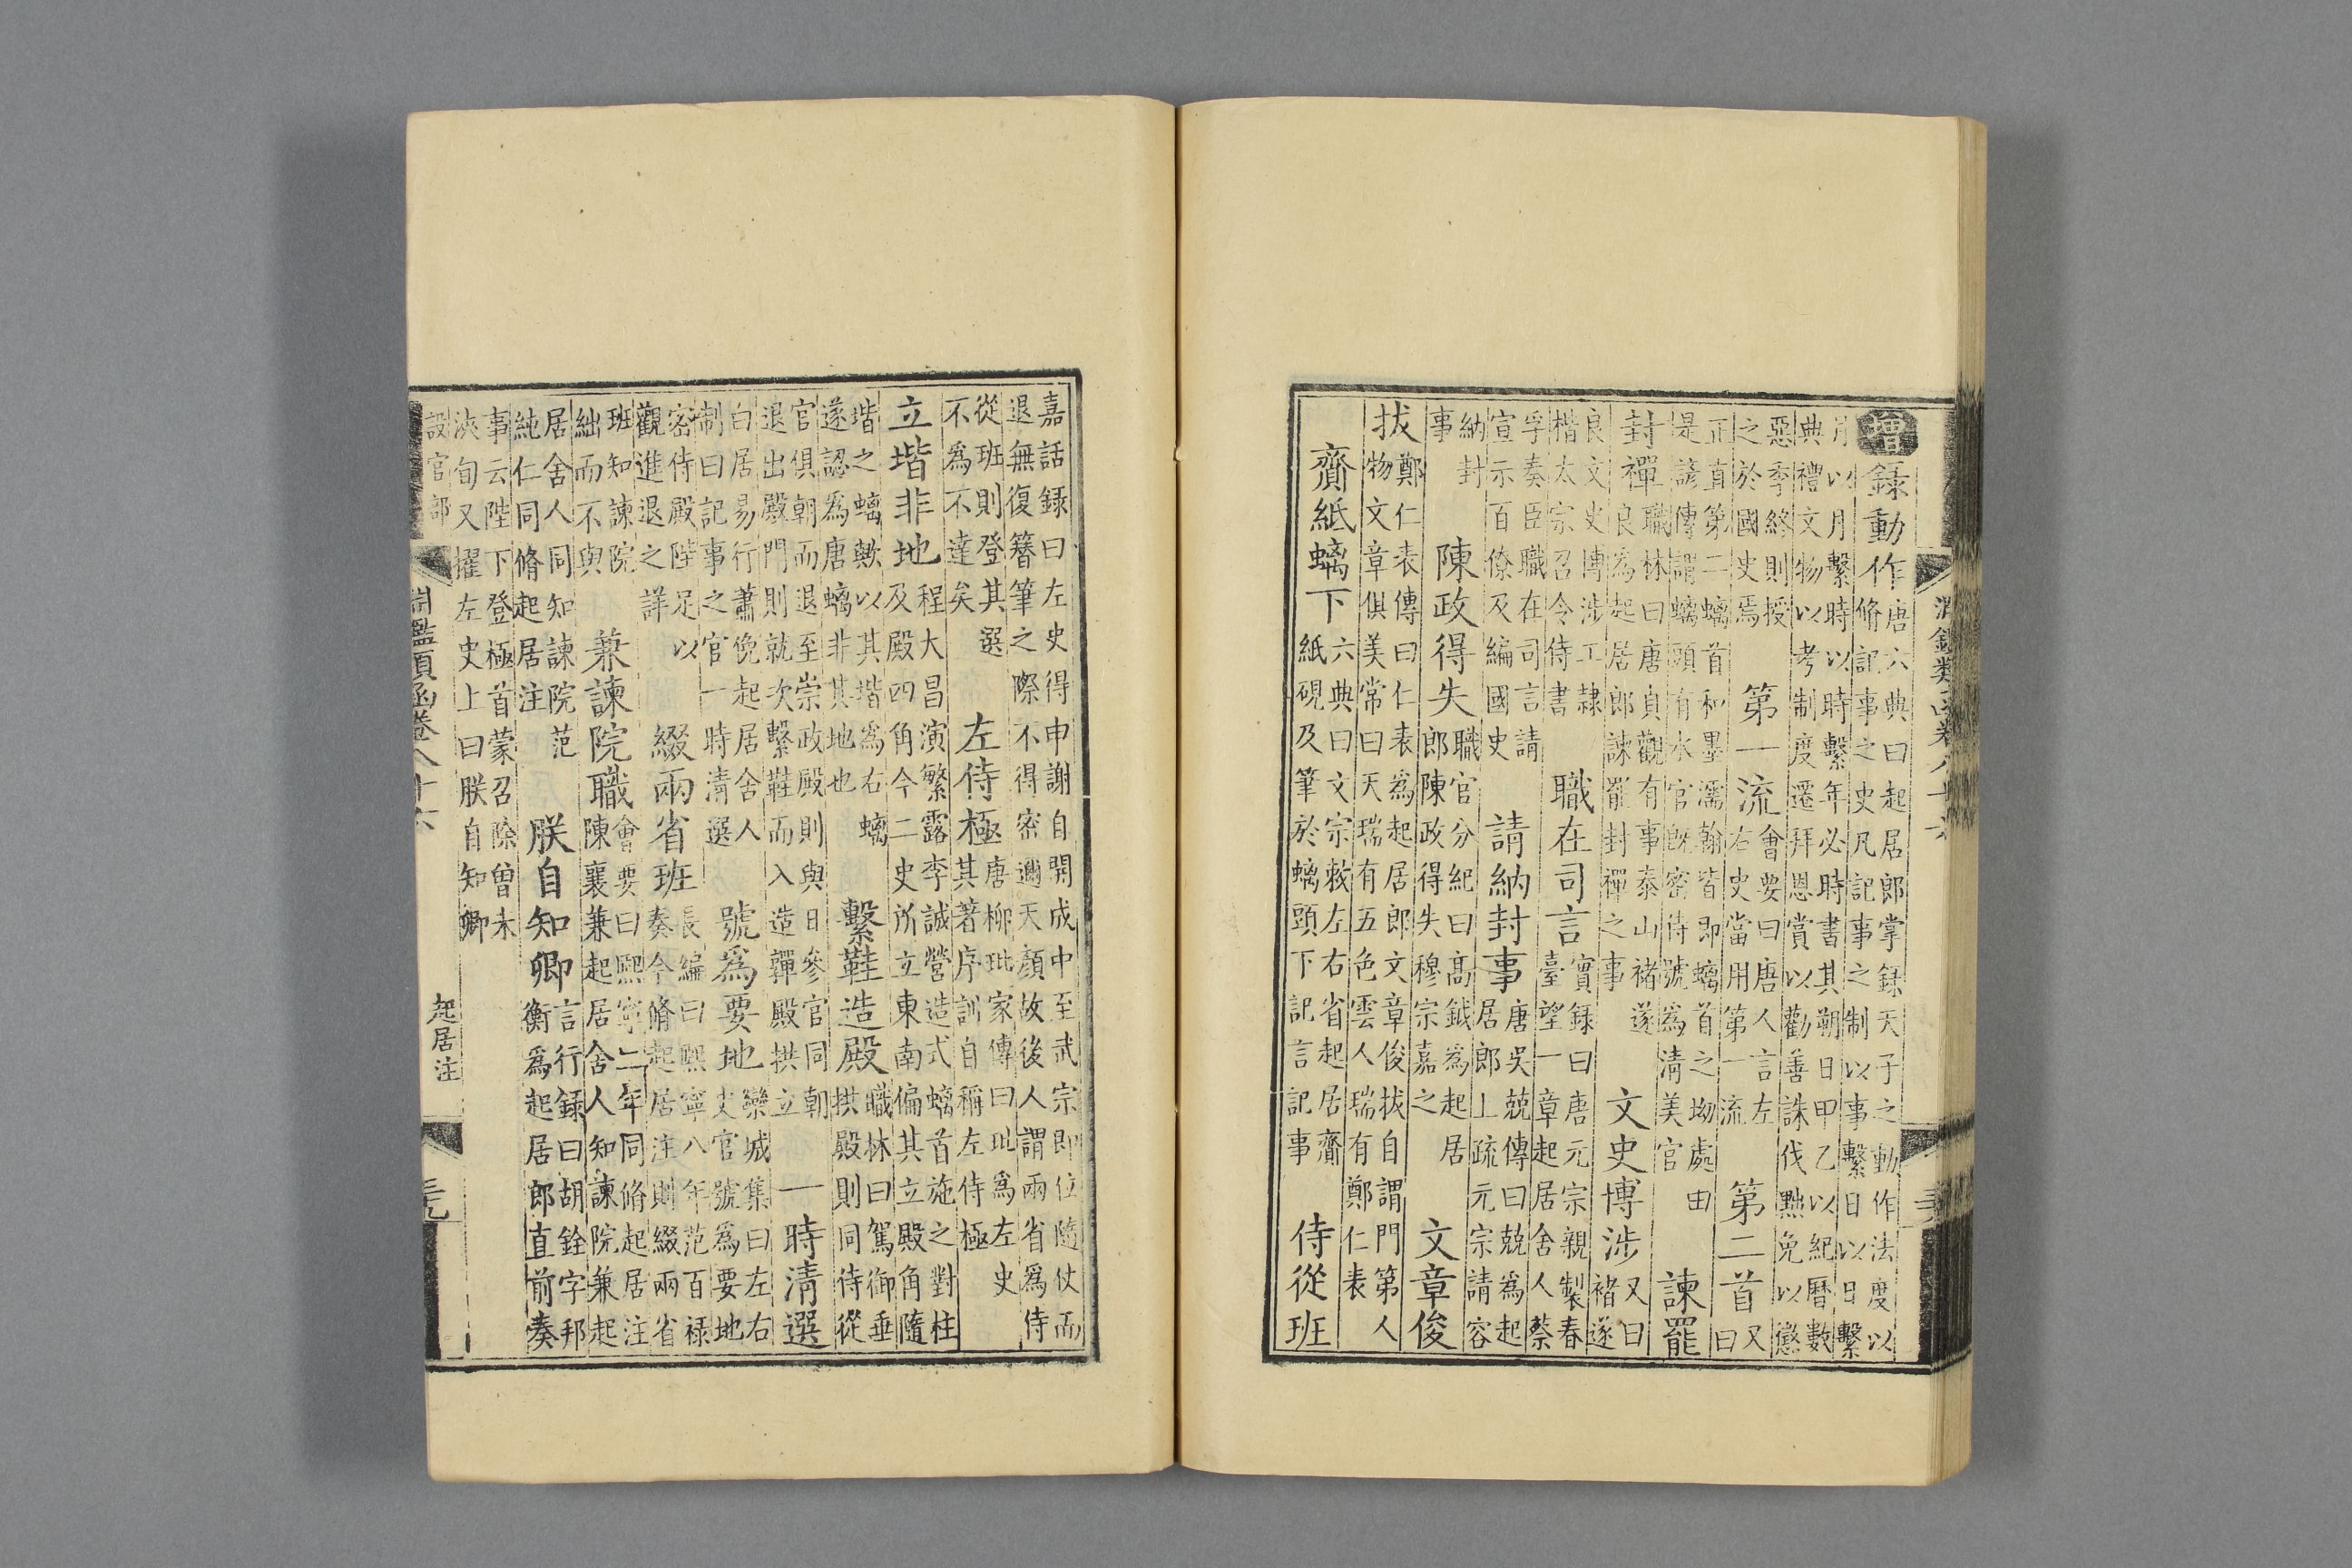 淵鑑類函卷八十六
增錄動作
唐六典曰起居郎掌錄天子之動作法度以
脩記事之史凡記事之制以事繫日以日繫
月以月繫時以時繫年必時書其朔日甲乙以紀曆數
典禮文物以考制度遷拜恩賞以勸善誅伐黜免以懲
惡季終則授
之於國史焉
第一流
會要曰唐人言左
右史當用第一流
第二首
又
曰
正直第二螭首和墨濡翰皆即螭首之坳處由
是諺傳謂螭頭有水官既密侍號為清美官
諫罷
封禪
職林曰唐貞觀有事泰山褚遂
良為起居郎諫罷封禪之事
文史博涉
又曰
褚遂
良文史博涉工隸
楷太宗召令侍書
職在司言
實錄曰唐元宗親製春
臺望一章起居舍人蔡
孚奏臣職在司言請
宣示百僚及編國史
請納封事
唐吳兢傳曰兢為起
居郎上疏元宗請容
納封
事
陳政得失
職官分紀曰高鉞為起居
郎陳政得失穆宗嘉之
文章俊
拔
鄭仁表傳曰仁表為起居郎文章俊拔自謂門第人
物文章俱美常曰天瑞有五色雲人瑞有鄭仁表
齎紙螭下
六典曰文宗敕左右省起居齎
紙硯及筆於螭頭下記言記事
侍從班
嘉話錄曰左史得申謝自開成中至武宗即位隨仗而
退無復簪筆之際不得密邇天顏故後人謂兩省為侍
從班則登其選
不為不達矣
左侍極
唐柳玭家傳曰玭為左史
其著序訓自稱左侍極
立堦非地
程大昌演繁露李誡營造式螭首施之對柱
及殿四角今二史所立東南偏其立殿角隨
堦之螭歟以其堦為右螭
遂認為唐螭非其地也
繫鞋造殿
職林曰駕御垂
拱殿則同侍從
官俱朝而退至崇政殿則與日參官同朝
退出殿門則就次繫鞋而入造殫殿拱立
一時清選
白居易行蕭俛起居舍人
制曰記事之官一時清選
號為要地
欒城集曰左右
史官號為要地
密侍殿陛足以
觀進退之詳
綴兩省班
長編曰熙寧八年范百祿
奏今脩起居注則綴兩省
班知諫院
絀而不與
兼諫院職
會要曰熙寧二年同脩起居注
陳襄兼起居舍人知諫院兼起
居舍人同知諫院范
純仁同脩起居注
朕自知卿
言行錄曰胡銓字邦
衡為起居郎直前奏
事云陛下登極首蒙召除曾未
浹旬又擢左史上曰朕自知卿
設官部
淵鑑類函卷八十六
起居注